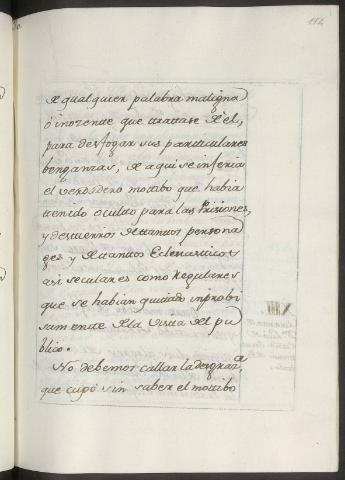 114
de qualquier palabra maligna
ó inozente que tratase de él,
para desfogar sus particulares
benganzas, de aqui se inferia
el verdadero motibo que habia
tenido oculto para las Prisiones,
y destierros de tantos persona
ges y de tantos Eclesiasticos
asi seculares como Regulares
que se habian quitado inprobi
samente de la vista del pu
blico.
No debemos callar la desgraz.ª
que cupo sin saber el motibo